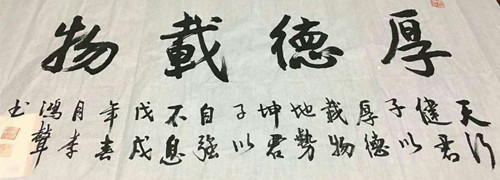 厚德載物
天行
健君
子以
厚德
載物
地勢
坤君
子以
自强
不息
戊戌
年春
月李
鴻
书